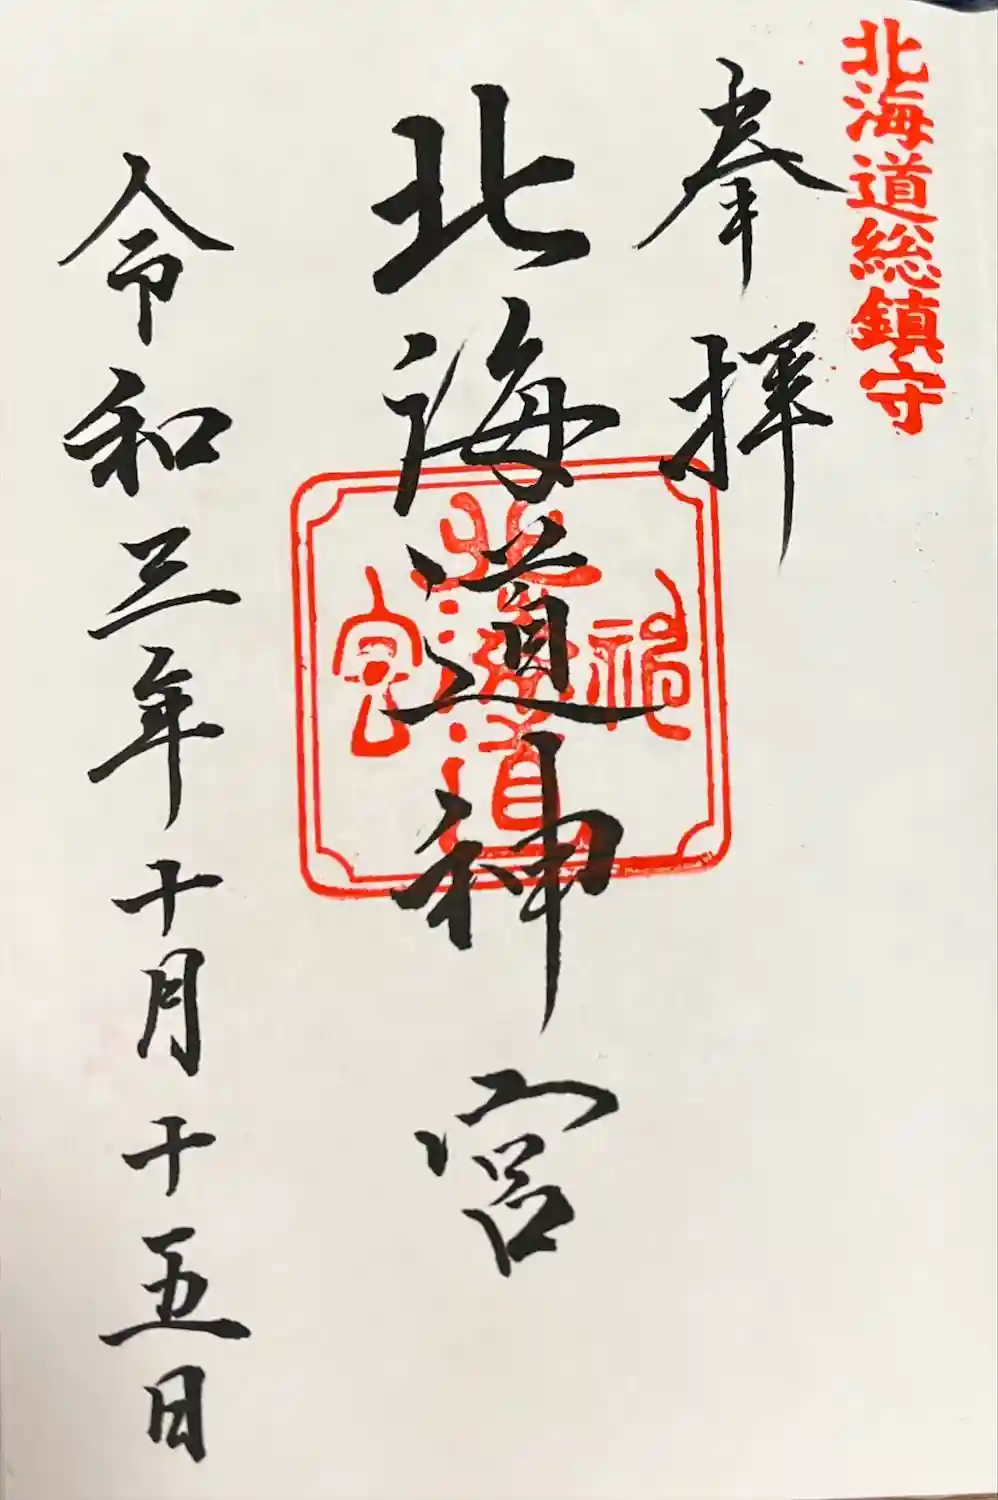 北海道総鎮守
奉拝
北海道神宮
北海道神宮
令和三年十月十五日